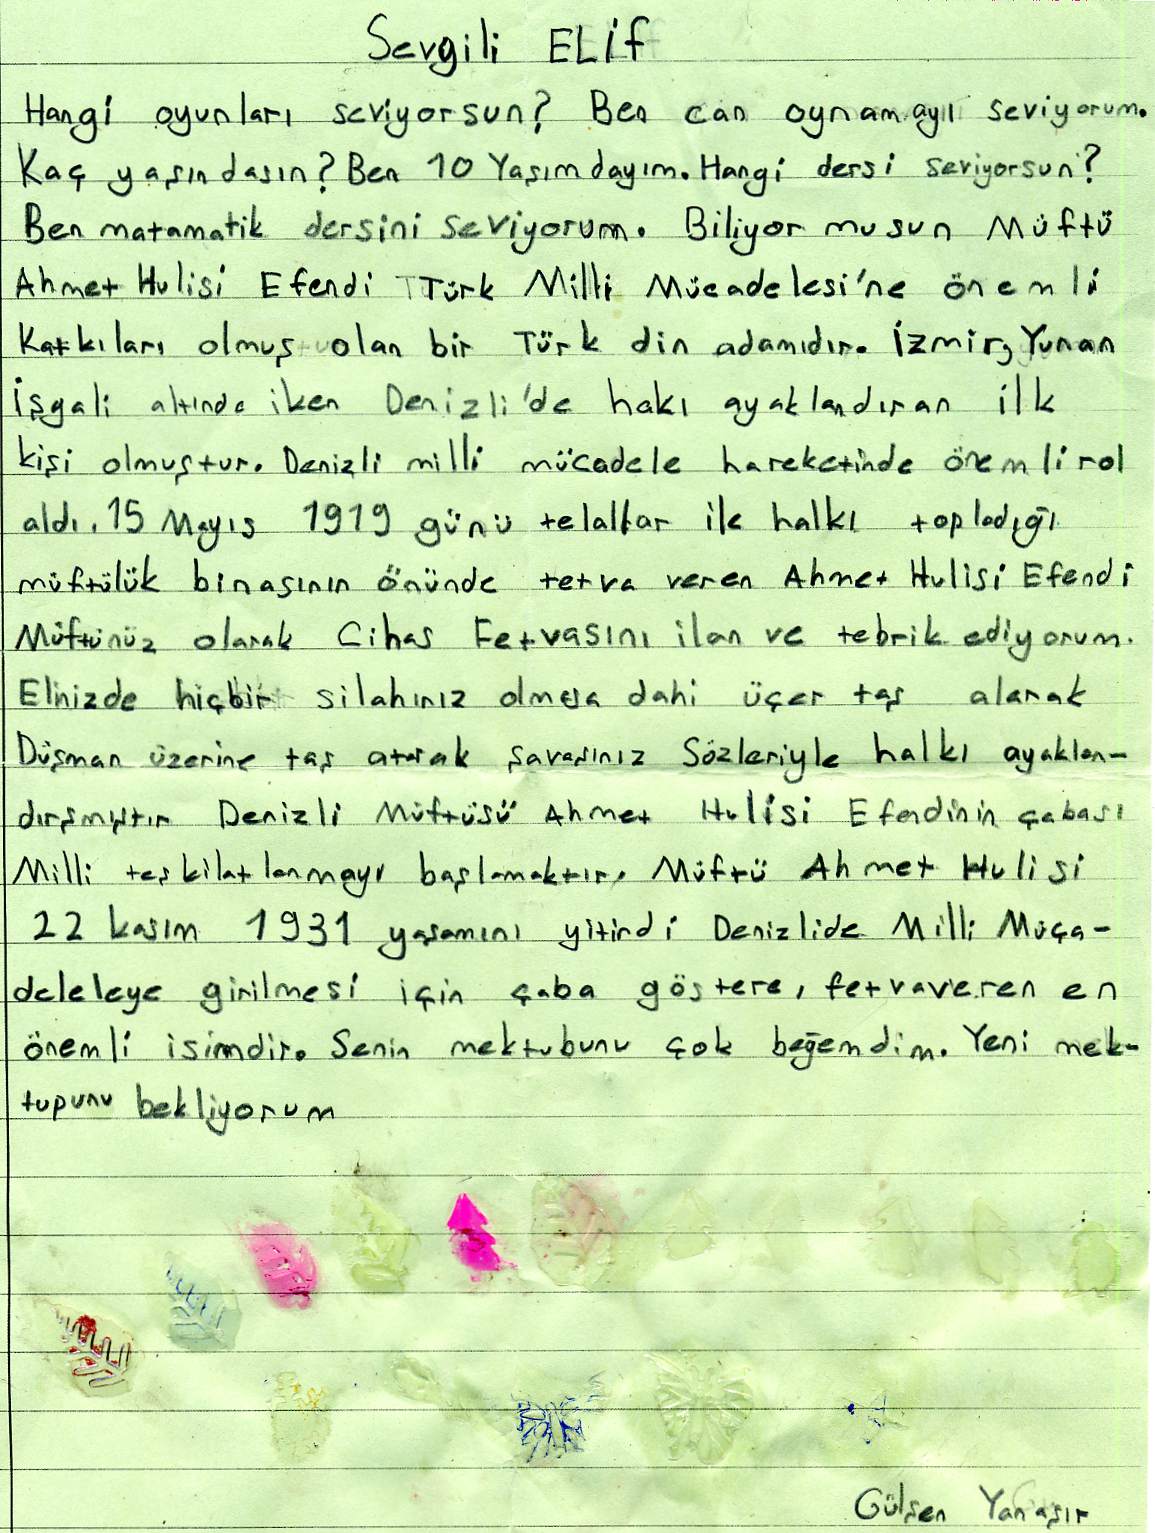 Sevgili ELİf
Hangi oyunları seviyorsun? Ben can oynamayı seviyorum.
Kaç yaşındasın? Ben 10 Yaşımdayım. Hangi dersi seviyorsun?
Ben matamatik dersini seviyorum. Biliyor musun Müftü
Ahmet Hulisi Efendi Türk Milli Mücadelesi'ne önemli
Katkıları olmuş olan bir Türk din adamıdır. İzmir, Yunan
İşgali altında iken Denizli'de hakı ayaklandıran ilk
kişi olmuştur. Denizli milli mücadele hareketinde önemli rol
aldı. 15 Mayıs 1919 günü telallar ile halkı topladığı
müftülük binasının önünde tetva veren Ahmet Hulisi Efendi
Müftünüz olarak Cihas Fetvasını ilan ve tebrik ediyorum.
Elinizde hiçbir silahınız olmasa dahi üçer taş alarak
Düşman üzerine taş atarak şavaşınız Sözleriyle halkı ayaklan-
dırşmıştır Denizli Müftüsü Ahmet Hulisi Efendinin çabası
Milli teşkilatlanmayı başlamaktır. Müftü Ahmet Hulisi
22 kasım 1931 yaşamını yitirdi Denizlide Milli Müça-
deleleye girilmesi için çaba göstere, fetvaveren en
önemli isimdir. Senin mektubunu çok beğemdim. Yeni mek-
tupunu bekliyorum
Gülşen Yanaşır